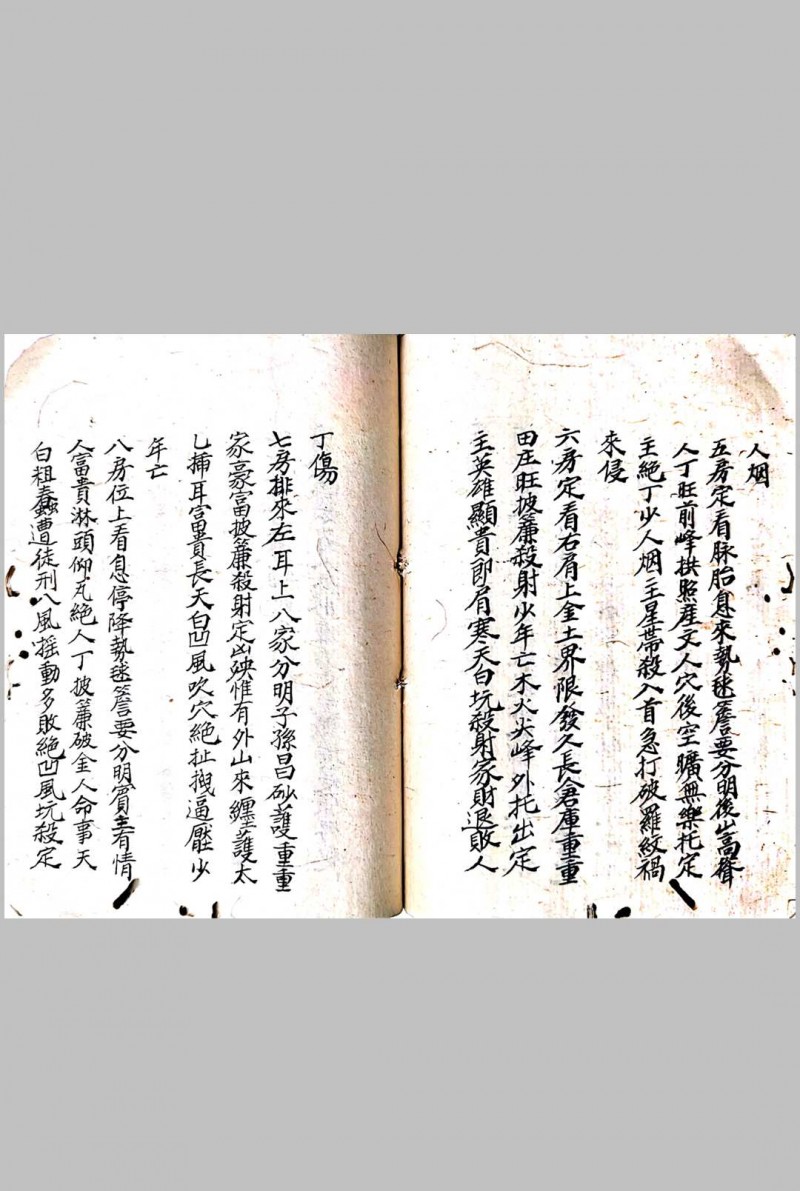 人烟
五房定看脉胎息來勢毬簷要分明後山高聳
人丁旺前峰拱照產文人穴後空曠無樂托定
主絕丁少人烟主星帶殺入首急打破羅紋禍
來侵
六房定看右肩上金土界限發久長倉庫重重
田庄旺披簾殺射少年亡木火尖峰外托出定
主英雄顯貴郎肩寒天白坑殺射家財退敗人
丁傷
七房排來左耳上八家分明子孫昌砂護重重
家豪富披簾殺射定出殃惟有外山來纏護太
乚揷耳富貴長天白凹風吹穴絕扯拽逼壓少
年亡
八房位上看息停降勢毬簷要分明賓主有情
人富貴淋頭仰瓦絕人丁披簾破金人命事天
白粗蠢遭徒刑八風搖動多敗絕凹風坑殺定